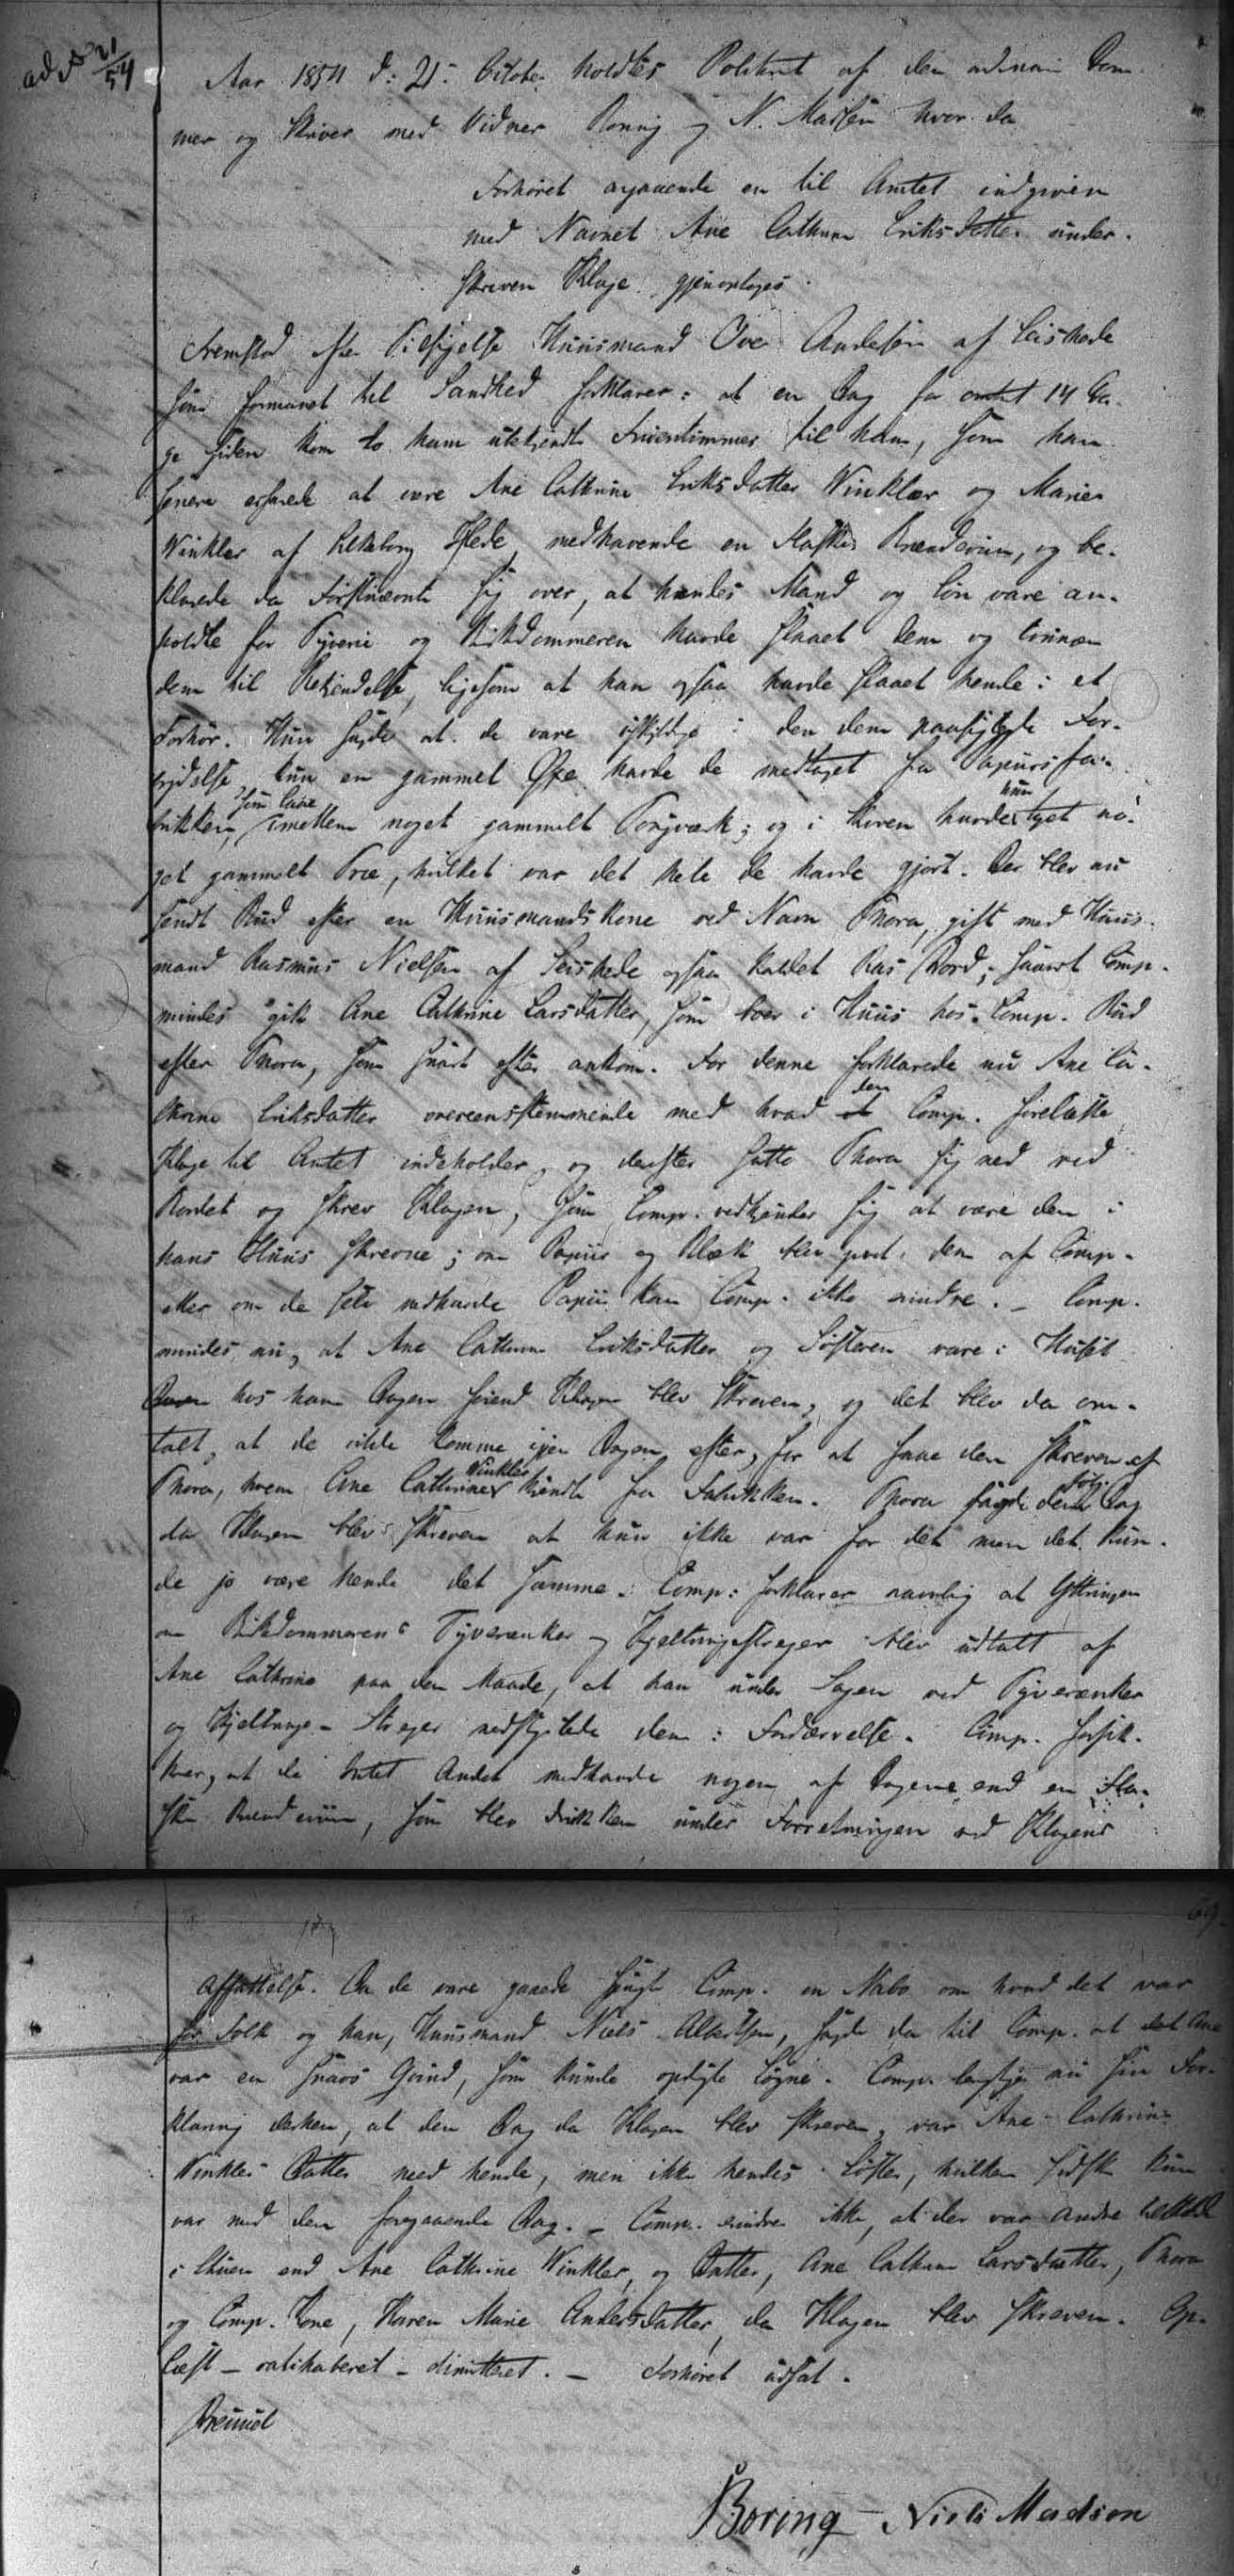 ad No 21/54
Aar 1854 d: 21: October holdtes Politiret af den ordinair Dom-
mer og Skriver med Vidner Boring og N. Madsen hvor da
Forhøret angaaende en til Amtet indgiven
med Navnet Ane Cathrine Eriksdatter under-
skreven Klage gjenoptages.
Fremstod efter Tilsigelse Huusmand Ove Andersen af
som formanet til Sandhed forklarer: at en Dag for omtrt 14 Da-
ge siden kom to ham ubekjendte Fruentimmer til ham, som han
senere erfarede at være Ane Cathrine Eriksdatter Winkler og Maria
Winkler af Silkeborg Hede, medhavende en Flaske Brændeviin, og be-
klagede da Førstnævnte sig over, at hendes Mand og Søn vare an-
holdte for Tyverie og Birkdommeren havde slaaet dem og tvunen
dem til Bekjendelse, ligesom at han ogsaa havde slaaet hende i et
Forhør. Hun sagde at de vare uskyldige i den dem paasigtede For-
brydelse, kun en gammel Øxe havde de medtaget fra Papiirsfa-
brikken, som laae imellem noget gammelt Tougværk; og i Skoven havde hun taget no-
get gammelt Træ, hvilket var det hele de havde gjort. Der blev nu
sendt Bud efter en Huusmandskone ved Navn Thora, gift med Huus-
mand Rasmus Nielsen af Seishede ogsaa kaldet Ras Bord; saavidt Comp.
mindes gik Ane Cathrine Larsdatter, som boer i Huus hos Comp. Bud
efter Thora, som snart efter ankom. For denne forklarede nu Ane Ca-
thrine Eriksdatter overeensstemmende med hvad den Comp. forelæste
Klage til Amtet indeholder, og derefter satte Thora sig ned ved
Bordet og skrev Klagen, som Comp. vedkjender sig at være den i
hans Huus skrevne; om Papiir og Blæk blev givet dem af Comp.
eller om de selv medhavde Papiir kan Comp. ikke erindre. – Comp.
mindes nu, at Ane Cathrine Eriksdatter og Søsteren vare i Huset
hos ham Dagen førend Klagen blev skreven, og det blev da om-
talt, at de vilde komme igjen Dagen efter, for at faae den skreven af
Thora, hvem Ane Cathrine Winkler kjendte fra Fabrikken. Thora sagde den Dag
da Klagen blev skreven at hun ikke var for det men det kun-
de jo være hende det samme. Comp: forklarer navnlig at Yttringen
om Birkdommerens Tyverænker og Kjeltringestreger blev udtalt af
Ane Cathrine paa den Maade, at han under Sagen ved Tyverænker
og Kjeltringe-Streger nedstyrtede dem i Fordærvelse. Comp. forsik-
krer, at de Intet Andet medhavde nogen af Dagene end en Fla-
ske Brændeviin, som blev drukken under Forretningen ved Klagens
Affattelse. Da de vare gaaede spurgte Comp. en Nabo om hvad det var
for Folk og han, Huusmand Niels Albertsen, sagde da til Comp. at det Ane
var en Quind, som kunde opdigte Løgne. Comp. nu sin For-
klaring derhen, at den Dag da Klagen blev skreven, var Ane Cathrine
Winklers Datter med hende, men ikke hendes Søster, hvilken sidste kun
var med den foregaaende Dag. – Comp. erindrer ikke, at der var andre
i Stuen end Ane Cathrine Winkler, og Datter, Ane Cathrine Larsdatter, Thora
og Comp. Kone, Karen Marie Andersdatter, da Klagen blev skreven. Op-
læst – ratihaberet – dimitteret. – Forhøret udsat.
Boring – Niels Madsen